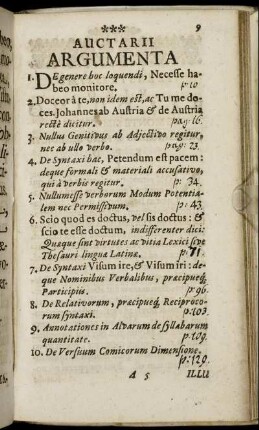 *** 9
AUCTARII
ARGUMENTA
1. DE genere hoc loquendi, Necesse ha-
beo monitore. p: 10
2. Doceor à te, non idem est, ac Tu me do-
ces. Johannes ab Austria & de Austria
rectè dicitur. pag: 16.
3. Nullus Genitivus ab Adjectivo regitur,
nec ab ullo verbo. p: 23.
4. De Syntaxi hac, Petendum est pacem:
deque formali & materiali accusativo,
qui à verbis regitur. p: 34.
5. Nullum esse verborum Modum Potentia-
lem nec Permissivum. p: 43.
6. Scio quod es doctus, vel sis doctus: &
scio te esse doctum, indifferenter dici:
Quæque sint virtutes ac vitia Lexici sive
Thesauri linguæ Latinæ. p: 71.
7. De Syntaxi Visum ire, & Visum iri: de-
que Nominibus Verbalibus, præcipueq́;
Participiis. p: 96.
8. De Relativorum, præcipueq́; Reciproco-
rum syntaxi. p: 103.
9. Annotationes in Alvarum de syllabarum
quantitate. p: 109.
10. De Versuum Comicorum Dimensione.
p: 129.
A 5 ILLU